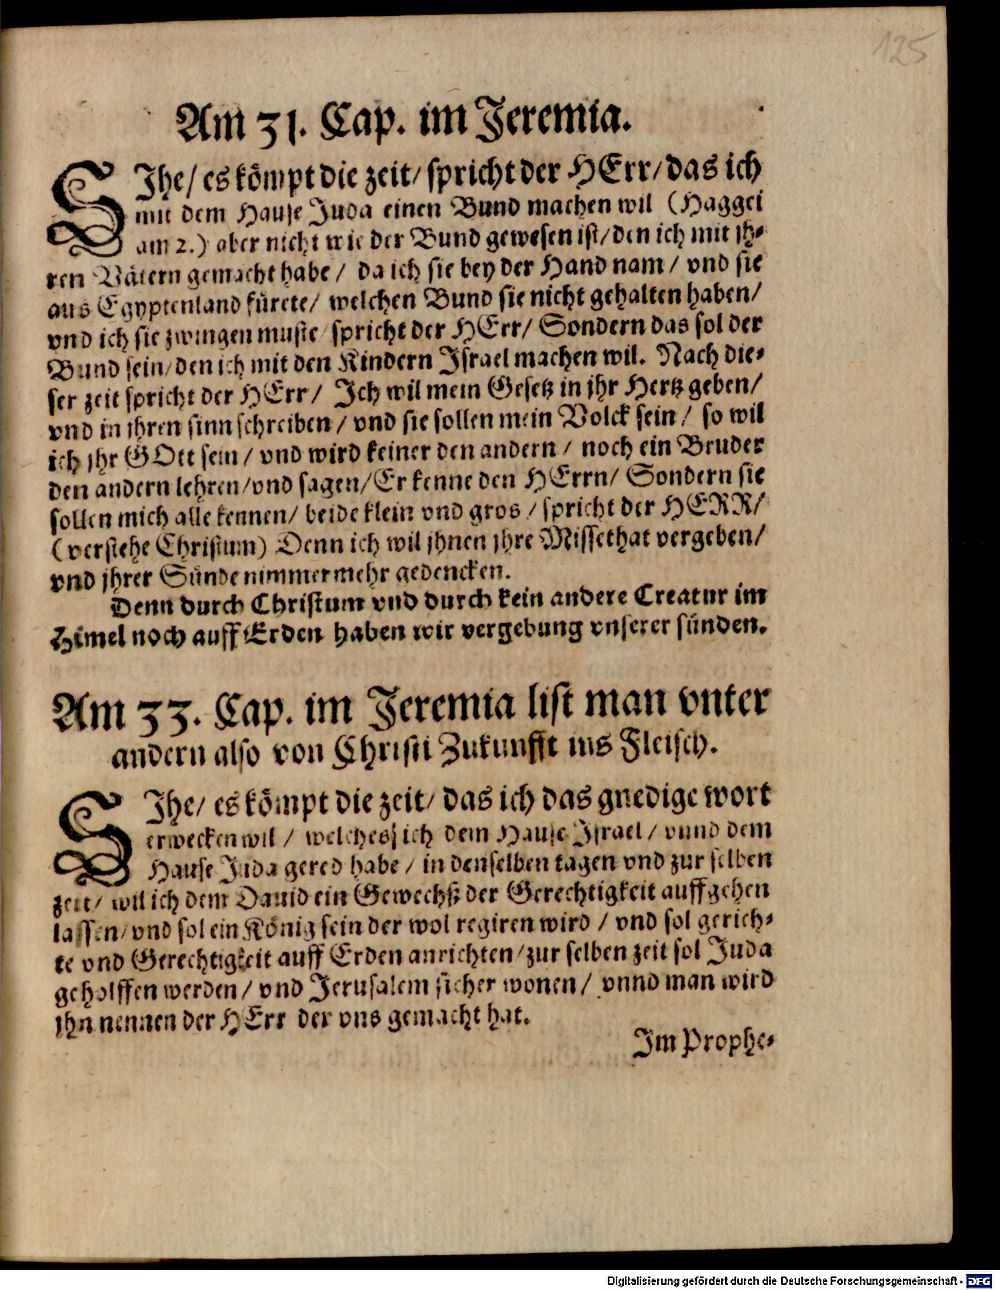 125
Am 31. Cap. im Jeremia.
SIhe/ es kömpt die zeit/ spricht der HErr/ das ich
mit dem Hause Juda einen Bund machen wil (Haggei
am 2.) aber nicht wie der Bund gewesen ist/ den ich mit jh-
ren Vätern gemacht habe/ da ich sie bey der Hand nam/ vnd sie
aus Egyptenland fürete/ welchen Bund sie nicht gehalten haben/
vnd ich sie zwingen muste spricht der HErr/ Sondern das sol der
Bund sein/ den ich mit den Kindern Israel machen wil. Nach die-
ser zeit spricht der HErr/ Ich wil mein Gesetz in jhr Hertz geben/
vnd in jhren sinn schreiben/ vnd sie sollen mein Volck sein/ so wil
ich jhr GOtt sein/ vnd wird keiner den andern/ noch ein Bruder
den andern lehren/ vnd sagen/ Erkenne den HErrn/ Sondern sie
sollen mich alle kennen/ beide klein vnd gros/ spricht der HERR/
(verstehe Christum) Denn ich wil jhnen jhre Missethat vergeben/
vnd jhrer Sünde nimmermehr gedencken.
Denn durch Christum vnd durch kein andere Creatur im
Himel noch auff Erden haben wir vergebung vnserer sünden.
Am 33. Cap. im Jeremia list man vnter
andern also von Christi Zukunfft ins Fleisch.
SIhe/ es kömpt die zeit/ das ich das gnedige wort
erwecken wil/ welches ich dem Hause Israel/ vnnd dem
Hause Juda gered habe/ in denselben tagen vnd zur selben
zeit/ wil ich dem Dauid ein Gewechß der Gerechtigkeit auffgehen
lassen/ vnd sol ein König sein der wol regiren wird/ vnd sol gerich-
te vnd Gerechtigkeit auff Erden anrichten/ zur selben zeit sol Juda
geholffen werden/ vnd Jerusalem sicher wonen/ vnnd man wird
jhn nennen der HErr der vns gemacht hat.
Im Prophe-
Digitalisierung gefördert durch die Deutsche Forschungsgemeinschaft - DFG